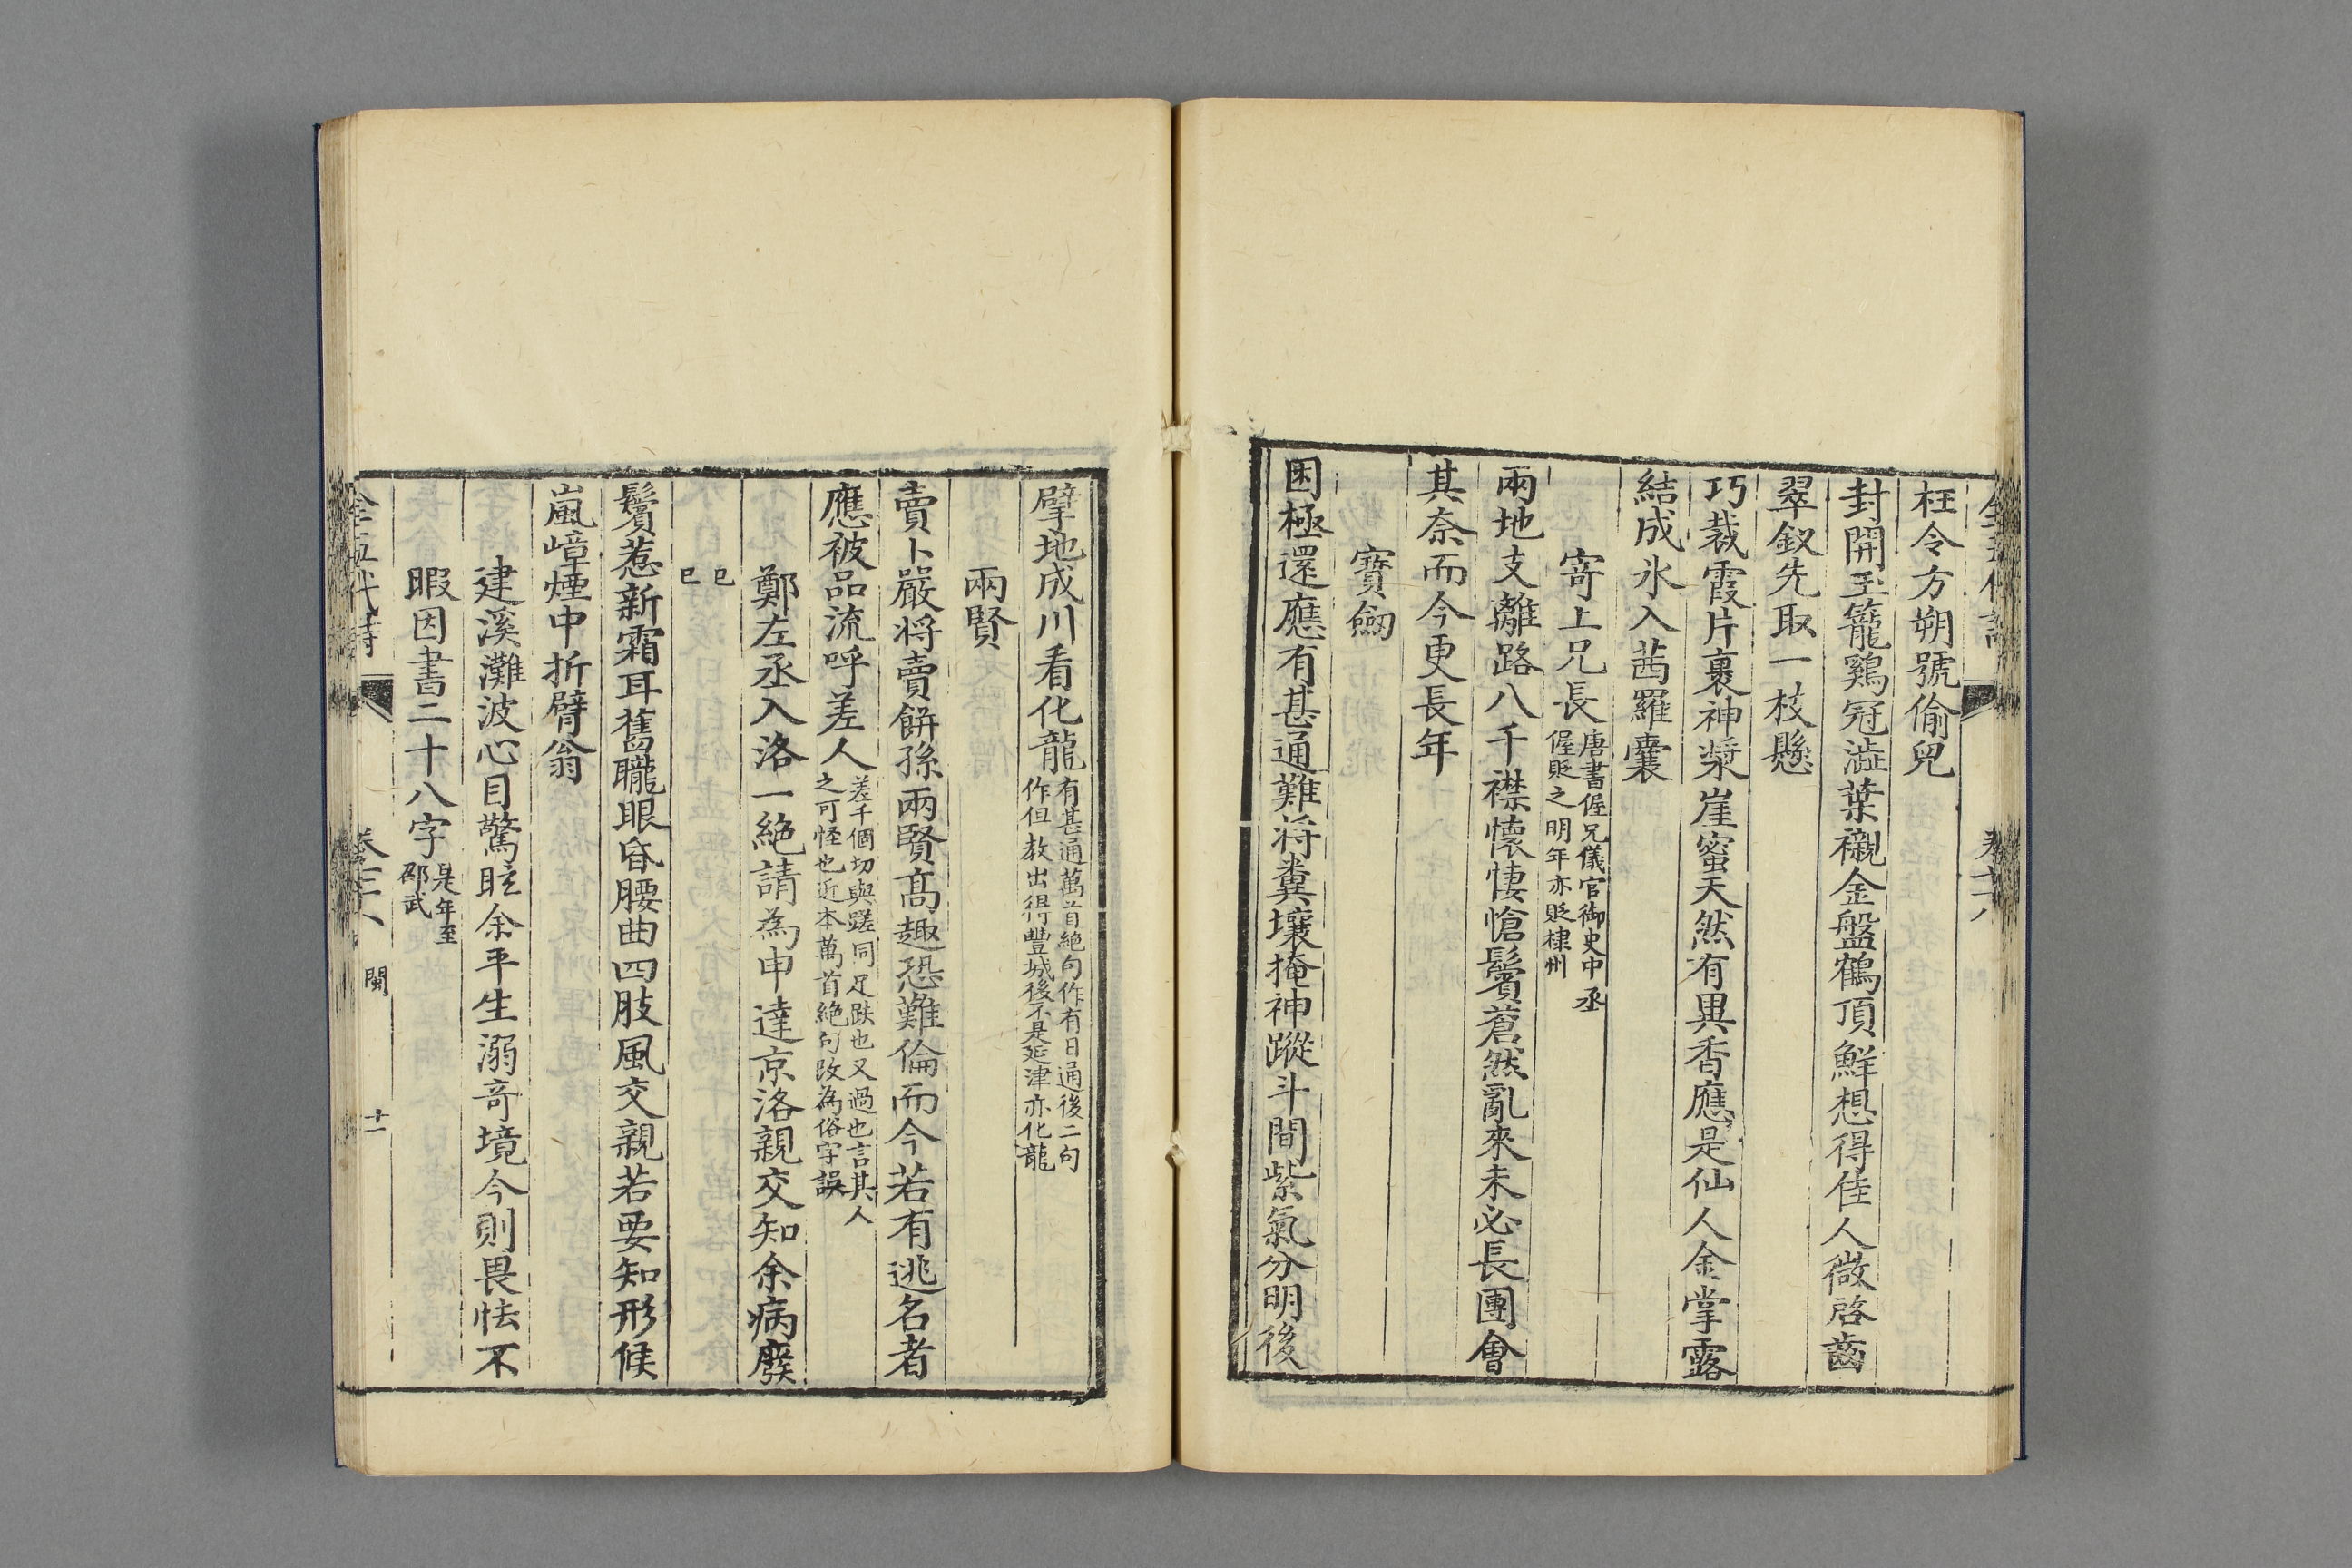 枉令方朔號偷兒
封開玉籠鷄冠澁葉襯金盤鶴頂鮮想得佳人微啓齒
翠釵先取一枝懸
巧裁霞片裹神漿崖蜜天然有異香應是仙人金掌露
結成氷入茜羅囊
寄上兄長唐書偓兄儀官御史中丞
偓貶之明年亦貶棣州
兩地支離路八千襟懷悽愴鬢蒼然亂來未必長團會
其奈而今更長年
寶劒
困極還應有甚通難將糞壤掩神蹤斗間紫氣分明後
擘地成川看化龍有甚通萬首絕句作有日通後二句
作但教出得豐城後不是延津亦化龍
兩賢
賣卜嚴將賣餅孫兩賢高趣恐難倫而今若有逃名者
應被品流呼差人差千個切與蹉同足跌也又過也言其人
之可怪也近本萬首絕句改為俗字誤
鄭左丞入洛一絕請為申達京洛親交知余病廢
已
已
鬢惹新霜耳舊朧眼昏腰曲四肢風交親若要知形候
嵐嶂煙中折臂翁
建溪灘波心目驚眩余平生溺奇境今則畏怯不
暇因書二十八字是年至
邵武
全五代詩
卷
閩
十一